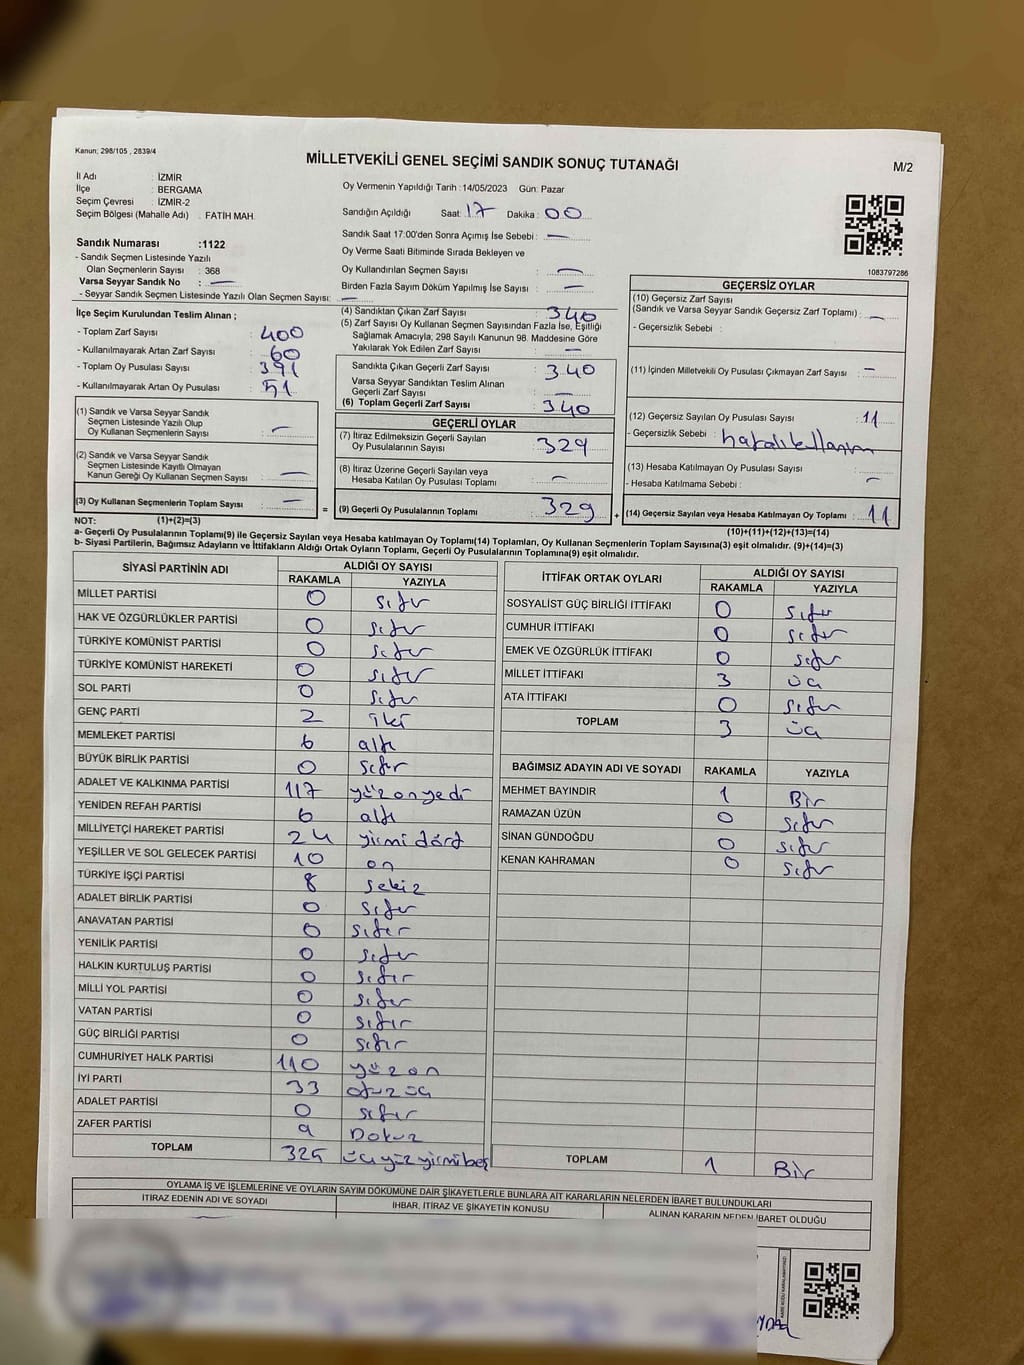 Kanun; 298/105 , 2839/4
MİLLETVEKİLİ GENEL SEÇİMİ SANDIK SONUÇ TUTANAĞI
M/2
İl Adı : İZMİR
İlçe : BERGAMA
Seçim Çevresi : İZMİR-2
Seçim Bölgesi (Mahalle Adı) : FATİH MAH.
Oy Vermenin Yapıldığı Tarih : 14/05/2023 Gün: Pazar
Sandığın Açıldığı Saat: 17 Dakika : 00
Sandık Saat 17:00'den Sonra Açımış İse Sebebi : —
Oy Verme Saati Bitiminde Sırada Bekleyen ve
Oy Kullandırılan Seçmen Sayısı : —
Birden Fazla Sayım Döküm Yapılmış İse Sayısı : —
1083797286
Sandık Numarası :1122
- Sandık Seçmen Listesinde Yazılı
Olan Seçmenlerin Sayısı : 368
Varsa Seyyar Sandık No : —
- Seyyar Sandık Seçmen Listesinde Yazılı Olan Seçmen Sayısı: —
İlçe Seçim Kurulundan Teslim Alınan ;
- Toplam Zarf Sayısı : 400
- Kullanılmayarak Artan Zarf Sayısı : 60
- Toplam Oy Pusulası Sayısı : 391
- Kullanılmayarak Artan Oy Pusulası : 51
(1) Sandık ve Varsa Seyyar Sandık
Seçmen Listesinde Yazılı Olup
Oy Kullanan Seçmenlerin Sayısı : —
(2) Sandık ve Varsa Seyyar Sandık
Seçmen Listesinde Kayıtlı Olmayan
Kanun Gereği Oy Kullanan Seçmen Sayısı : —
(3) Oy Kullanan Seçmenlerin Toplam Sayısı : —
(4) Sandıktan Çıkan Zarf Sayısı : 340
(5) Zarf Sayısı Oy Kullanan Seçmen Sayısından Fazla İse, Eşitliği
Sağlamak Amacıyla; 298 Sayılı Kanunun 98. Maddesine Göre
Yakılarak Yok Edilen Zarf Sayısı : —
Sandıkta Çıkan Geçerli Zarf Sayısı : 340
Varsa Seyyar Sandıktan Teslim Alınan
Geçerli Zarf Sayısı : —
(6) Toplam Geçerli Zarf Sayısı : 340
GEÇERLİ OYLAR
(7) İtiraz Edilmeksizin Geçerli Sayılan
Oy Pusulalarının Sayısı : 329
(8) İtiraz Üzerine Geçerli Sayılan veya
Hesaba Katılan Oy Pusulası Toplamı : —
= (9) Geçerli Oy Pusulalarının Toplamı : 329 +
GEÇERSİZ OYLAR
(10) Geçersiz Zarf Sayısı
(Sandık ve Varsa Seyyar Sandık Geçersiz Zarf Toplamı) : —
- Geçersizlik Sebebi :
(11) İçinden Milletvekili Oy Pusulası Çıkmayan Zarf Sayısı : —
(12) Geçersiz Sayılan Oy Pusulası Sayısı : 11
- Geçersizlik Sebebi : hatalı kullanım
(13) Hesaba Katılmayan Oy Pusulası Sayısı :
- Hesaba Katılmama Sebebi : —
(14) Geçersiz Sayılan veya Hesaba Katılmayan Oy Toplamı : 11
NOT: (1)+(2)=(3)
(10)+(11)+(12)+(13)=(14)
a- Geçerli Oy Pusulalarının Toplamı(9) ile Geçersiz Sayılan veya Hesaba katılmayan Oy Toplamı(14) Toplamları, Oy Kullanan Seçmenlerin Toplam Sayısına(3) eşit olmalıdır. (9)+(14)=(3)
b- Siyasi Partilerin, Bağımsız Adayların ve İttifakların Aldığı Ortak Oyların Toplamı, Geçerli Oy Pusulalarının Toplamına(9) eşit olmalıdır.
SİYASİ PARTİNİN ADI ALDIĞI OY SAYISI
RAKAMLA YAZIYLA
MİLLET PARTİSİ 0 sıfır
HAK VE ÖZGÜRLÜKLER PARTİSİ 0 sıfır
TÜRKİYE KOMÜNİST PARTİSİ 0 sıfır
TÜRKİYE KOMÜNİST HAREKETİ 0 sıfır
SOL PARTİ 0 sıfır
GENÇ PARTİ 2 iki
MEMLEKET PARTİSİ 6 altı
BÜYÜK BİRLİK PARTİSİ 0 sıfır
ADALET VE KALKINMA PARTİSİ 117 yüzonyedi
YENİDEN REFAH PARTİSİ 6 altı
MİLLİYETÇİ HAREKET PARTİSİ 24 yirmi dört
YEŞİLLER VE SOL GELECEK PARTİSİ 10 on
TÜRKİYE İŞÇİ PARTİSİ 8 sekiz
ADALET BİRLİK PARTİSİ 0 sıfır
ANAVATAN PARTİSİ 0 sıfır
YENİLİK PARTİSİ 0 sıfır
HALKIN KURTULUŞ PARTİSİ 0 sıfır
MİLLİ YOL PARTİSİ 0 sıfır
VATAN PARTİSİ 0 sıfır
GÜÇ BİRLİĞİ PARTİSİ 0 sıfır
CUMHURİYET HALK PARTİSİ 110 yüz on
İYİ PARTİ 33 otuz üç
ADALET PARTİSİ 0 sıfır
ZAFER PARTİSİ 9 Dokuz
TOPLAM 325 üçyüzyirmibeş
İTTİFAK ORTAK OYLARI ALDIĞI OY SAYISI
RAKAMLA YAZIYLA
SOSYALİST GÜÇ BİRLİĞİ İTTİFAKI 0 sıfır
CUMHUR İTTİFAKI 0 sıfır
EMEK VE ÖZGÜRLÜK İTTİFAKI 0 sıfır
MİLLET İTTİFAKI 3 üç
ATA İTTİFAKI 0 sıfır
TOPLAM 3 üç
BAĞIMSIZ ADAYIN ADI VE SOYADI RAKAMLA YAZIYLA
MEHMET BAYINDIR 1 Bir
RAMAZAN ÜZÜN 0 sıfır
SİNAN GÜNDOĞDU 0 sıfır
KENAN KAHRAMAN 0 sıfır
TOPLAM 1 Bir
OYLAMA İŞ VE İŞLEMLERİNE VE OYLARIN SAYIM DÖKÜMÜNE DAİR ŞİKAYETLERLE BUNLARA AİT KARARLARIN NELERDEN İBARET BULUNDUKLARI
İTİRAZ EDENİN ADI VE SOYADI İHBAR, İTİRAZ VE ŞİKAYETİN KONUSU ALINAN KARARIN NEDEN İBARET OLDUĞU